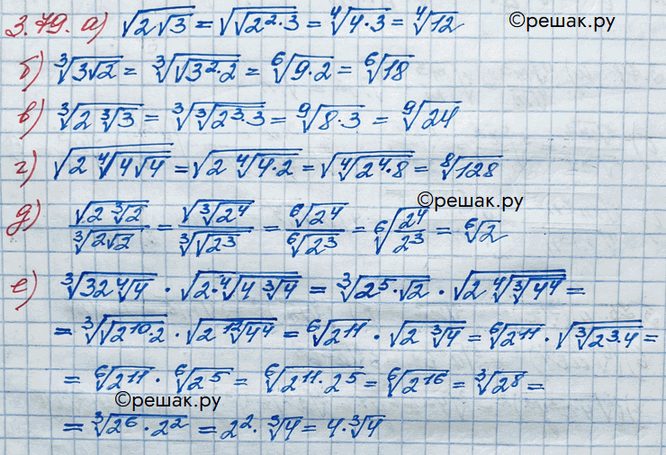 3.79. а) √(2√3) = √(√(2²·3)) = ⁴√(4·3) = ⁴√12 ©решак.ру
б) ³√(3√2) = ³√(√(3²·2)) = ⁶√(9·2) = ⁶√18
в) ³√(2 ³√3) = ³√(³√(2³·3)) = ⁹√(8·3) = ⁹√24
г) √(2 ⁴√(4√4)) = √(2 ⁴√(4·2)) = √(⁴√(2⁴·8)) = ⁸√128
©решак.ру
д) √(2 ³√2) / ³√(2√2) = √(³√2⁴) / ³√(√2³) = ⁶√2⁴ / ⁶√2³ = ⁶√(2⁴/2³) = ⁶√2
е) ³√(32 ⁴√4) · √(2·⁴√(4 ³√4)) = ³√(2⁵·√2) · √(2 ⁴√(³√4⁴)) =
= ³√(√(2¹⁰·2)) · √(2 ¹²√4⁴) = ⁶√2¹¹ · √(2 ³√4) = ⁶√2¹¹ · √(³√(2³·4)) =
= ⁶√2¹¹ · ⁶√2⁵ = ⁶√(2¹¹·2⁵) = ⁶√2¹⁶ = ³√2⁸ =
©решак.ру
= ³√(2⁶·2²) = 2²·³√4 = 4·³√4